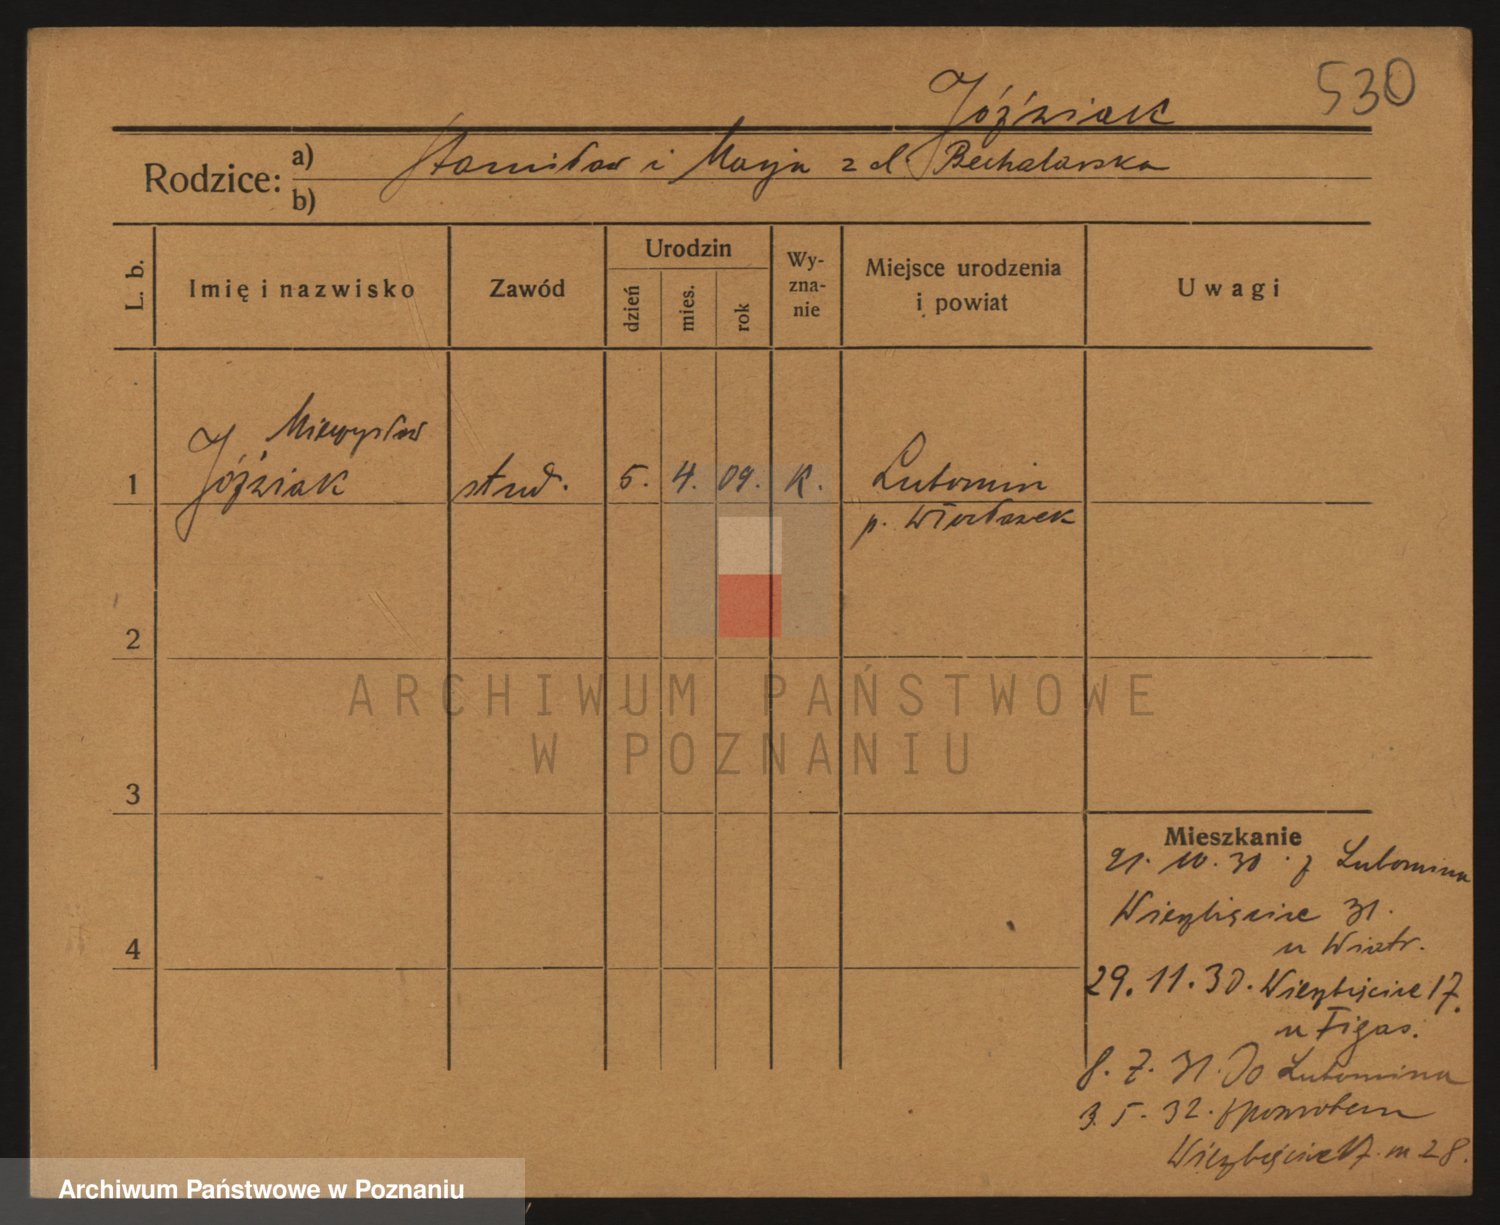 530
Jóźwiak
Rodzice: a) Stanisław i Marja z d. Bechalarska
b)
L. b. Imię i nazwisko Zawód Urodzin dzień mies. rok Wy-zna-nie Miejsce urodzenia i powiat Uwagi
Mieczysław
1 Jóźwiak stud. 5. 4. 09. K. Lubomin
p. Włocławek
2
ARCHIWUM PAŃSTWOWE
W POZNANIU
3
Mieszkanie
21. 10. 30. z Lubomina
Wierzbięcice 31.
4
u Wiatr.
29. 11. 30. Wierzbięcice 17.
u Figas.
8. 7. 31. Do Lubomina
3. 5. 32. z powrotem
Wierzbięcice 17. m 28.
Archiwum Państwowe w Poznaniu